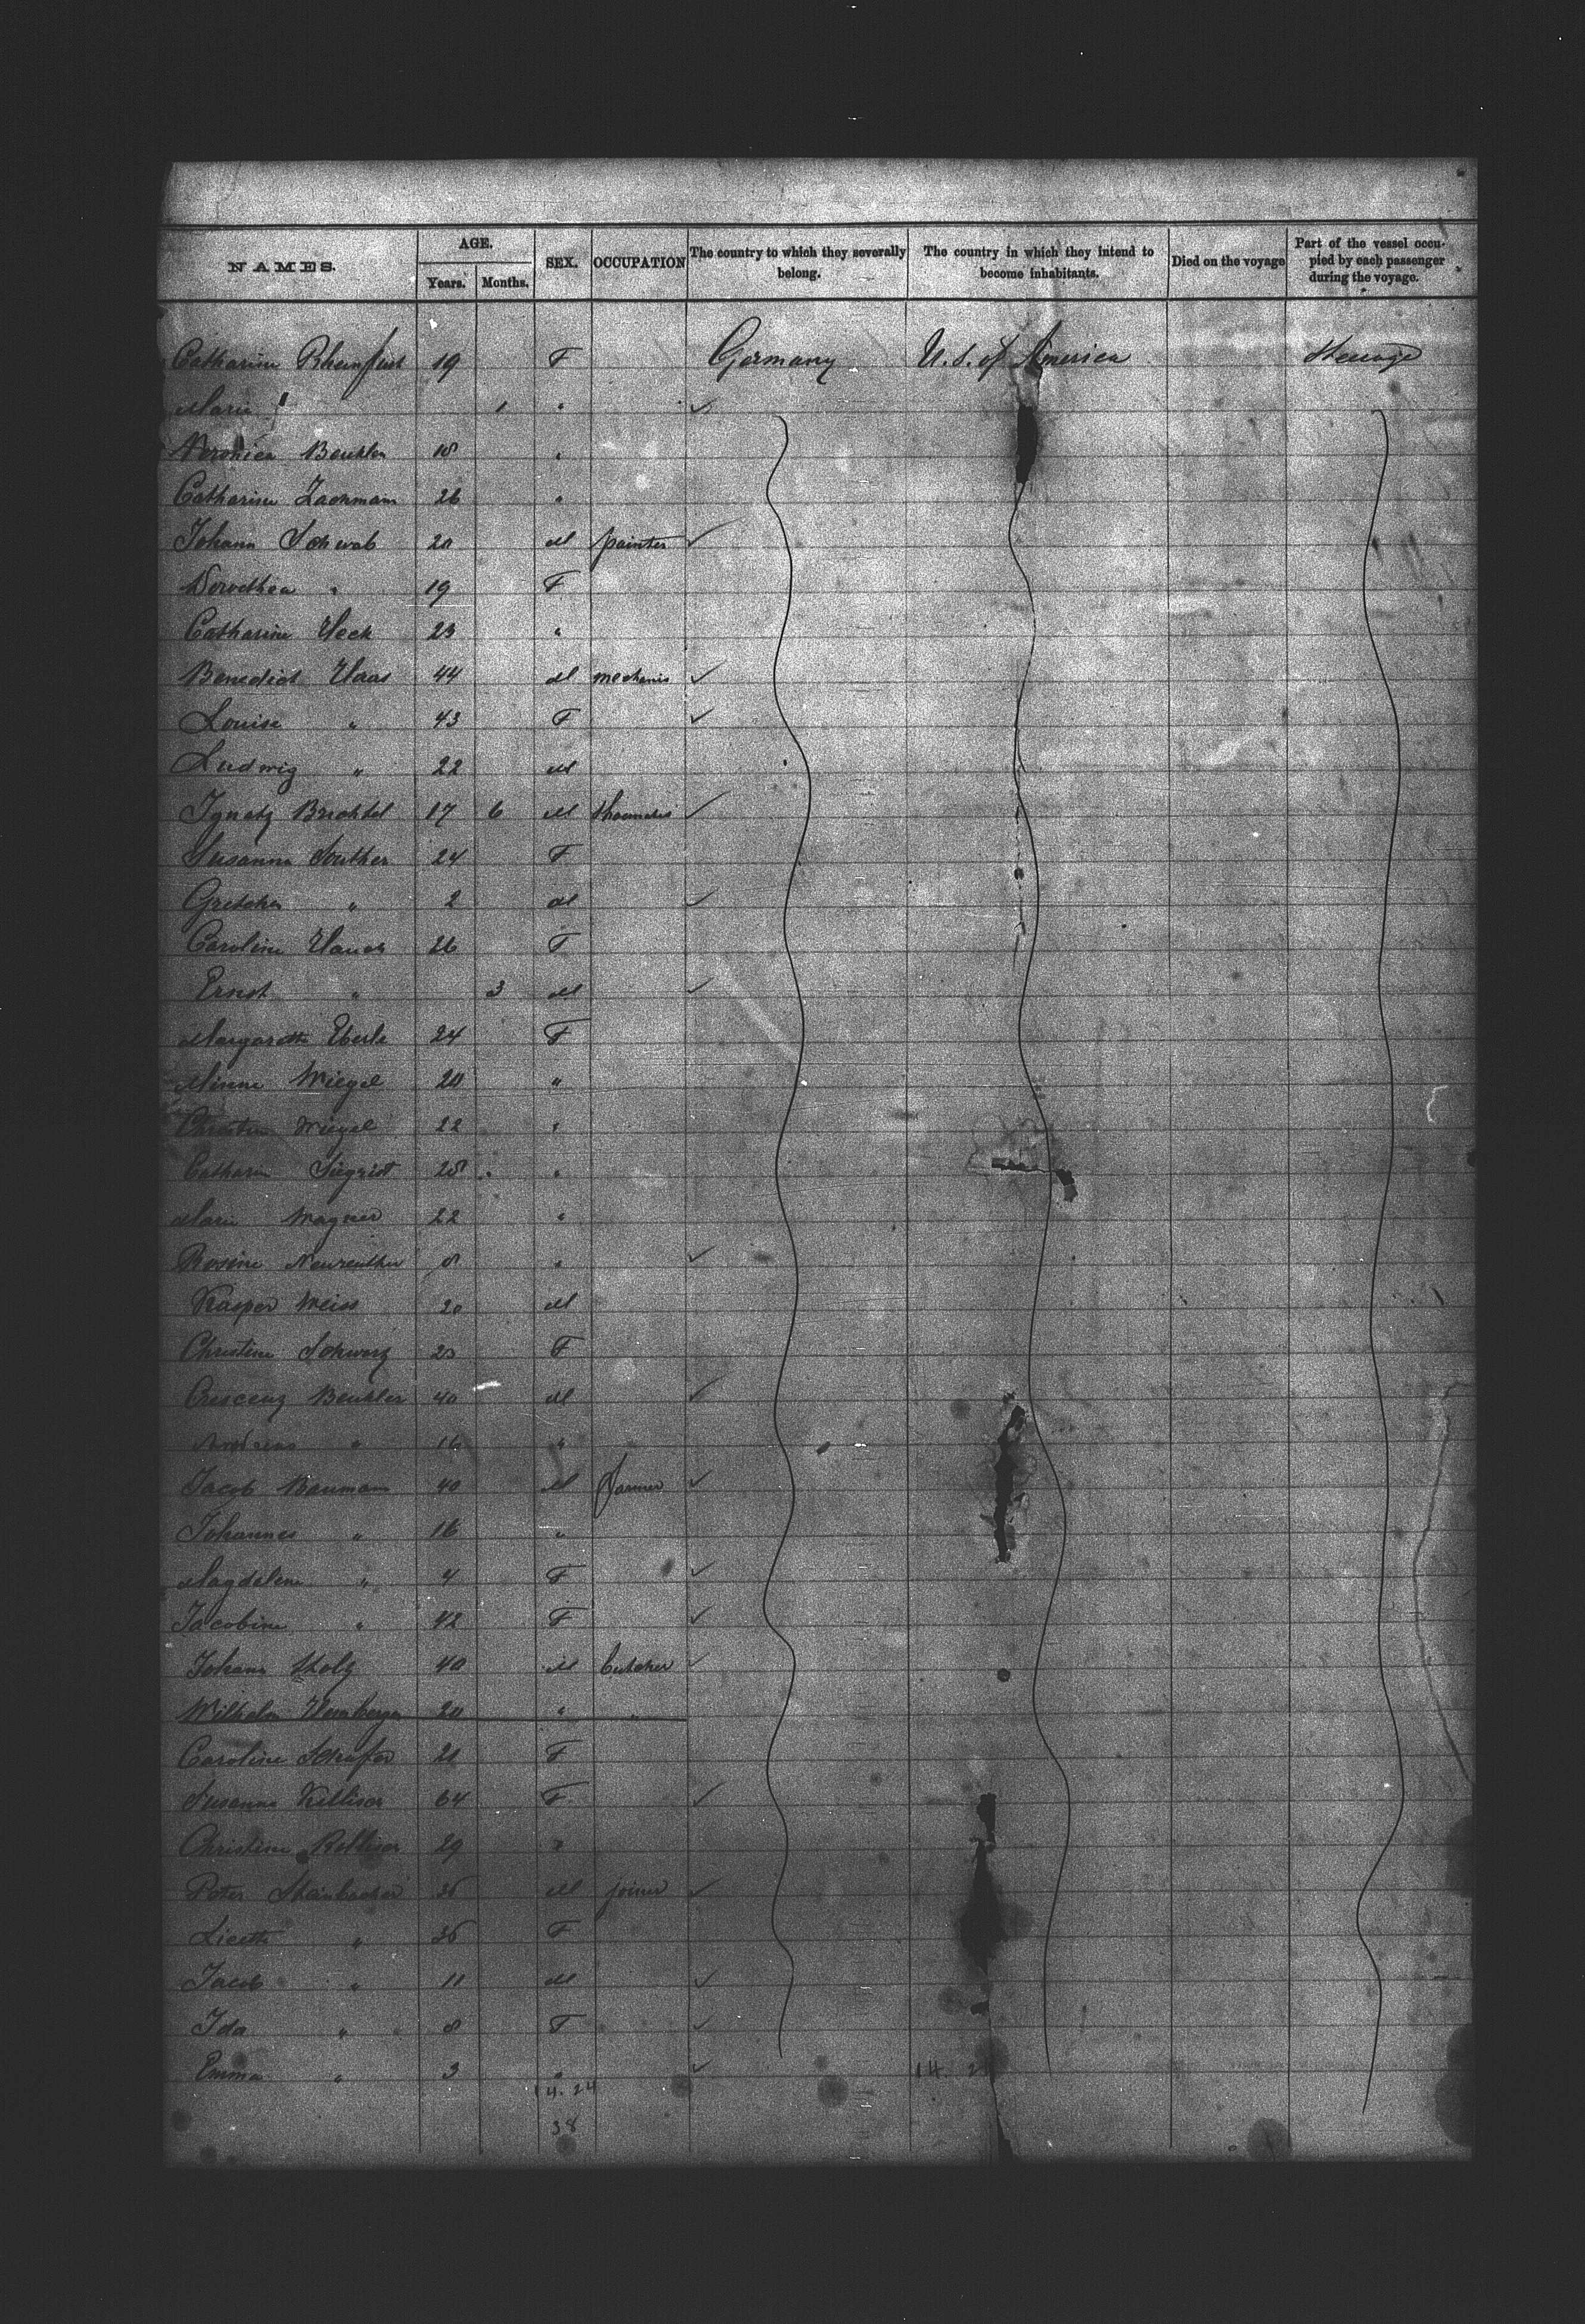 NAMES. AGE. SEX. OCCUPATION The country to which they severally belong. The country in which they intend to become inhabitants. Died on the voyage Part of the vessel occupied by each passenger during the voyage.
Years. Months.
Catharine 19 F Germany U. S. of America Steerage
Marie " 1 "
Veronica Beuhler 18 "
Catharine Zachmann 26 "
Johann Schwab 20 M painter
Dorothea " 19 F
Catharine Heck 23 "
Benedict Haas 44 M mechanic
Louise " 43 F
Ludwig " 22 M
Ignatz Brechtel 17 6 M
Susanna Souther 24 F
Gretchen " 2 M
Caroline 26 F
Ernst " 3 M
Margarethe Eberle 24 F
Minna Wiegel 20 "
Wiegel 22 "
Catharin Siegrist 28 "
Marie Wagner 22 "
Rosine Neureuther 8 "
Kasper Weiss 20 M
Christine 23 F
Crescenz Beuhler 40 M
Andreas " "
Jacob Baumann 40 M farmer
Johannes " 16 "
Magdalena " 4 F
Jacobine " 42 F
Johann Stolz 40 M butcher
Wilhelm 20 " "
Caroline Schafer 21 F
Susanna 64 F
Christine 29 "
Peter Steinbacher 36 M joiner
Licette " 36 F
Jacob " 11 M
Ida " 8 F
Emma " 3 "
14. 24
38